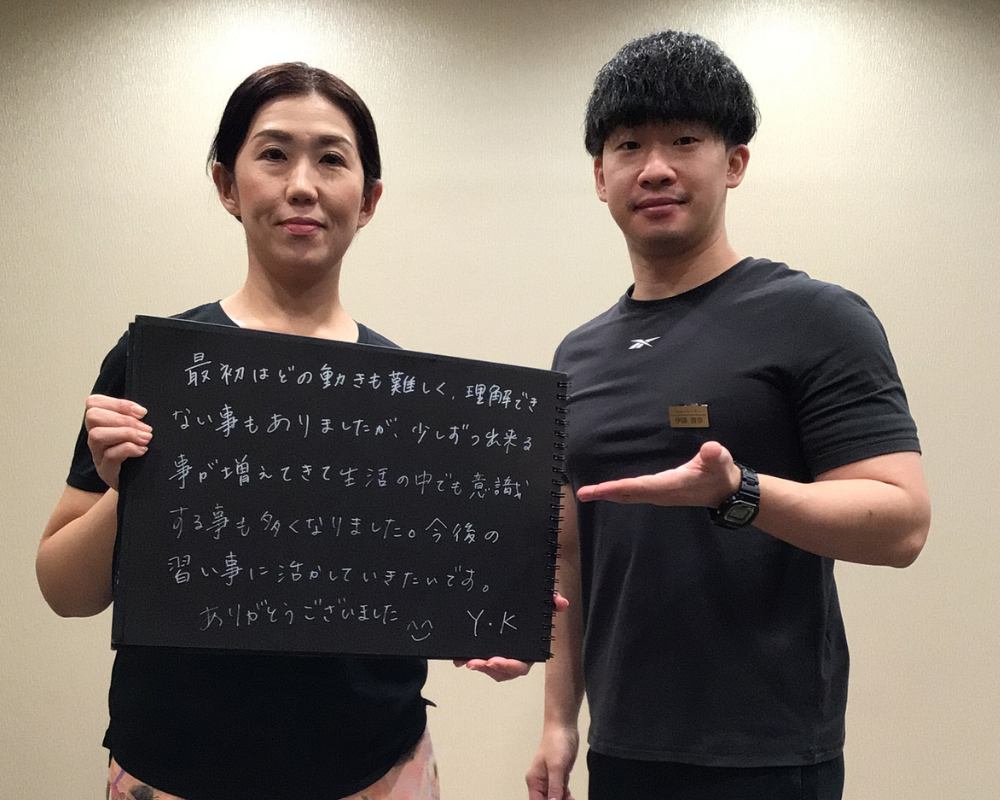 最初はどの動きも難しく、理解でき
ない事もありましたが、少しずつ出来る
事が増えてきて生活の中でも意識
する事も多くなりました。今後の
習い事に活かしていきたいです。
ありがとうございました ^^
Y・K